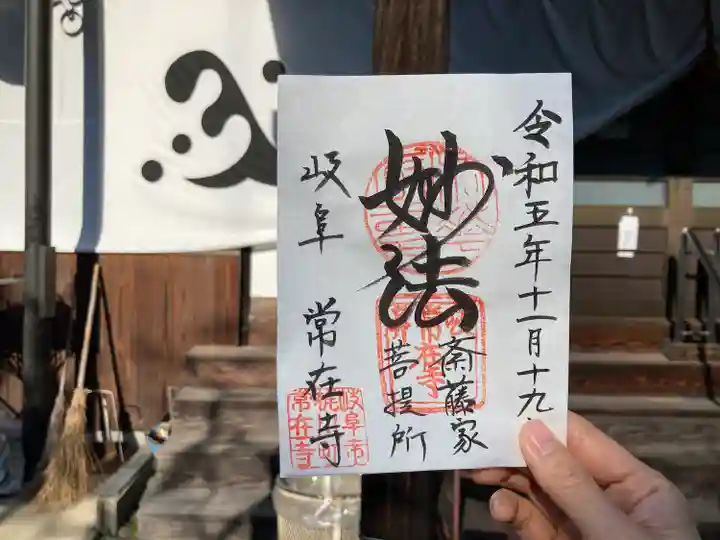 令和五年十一月十九
妙法
斎藤家
菩提所
常在寺
岐阜 常在寺
岐阜市
常在寺